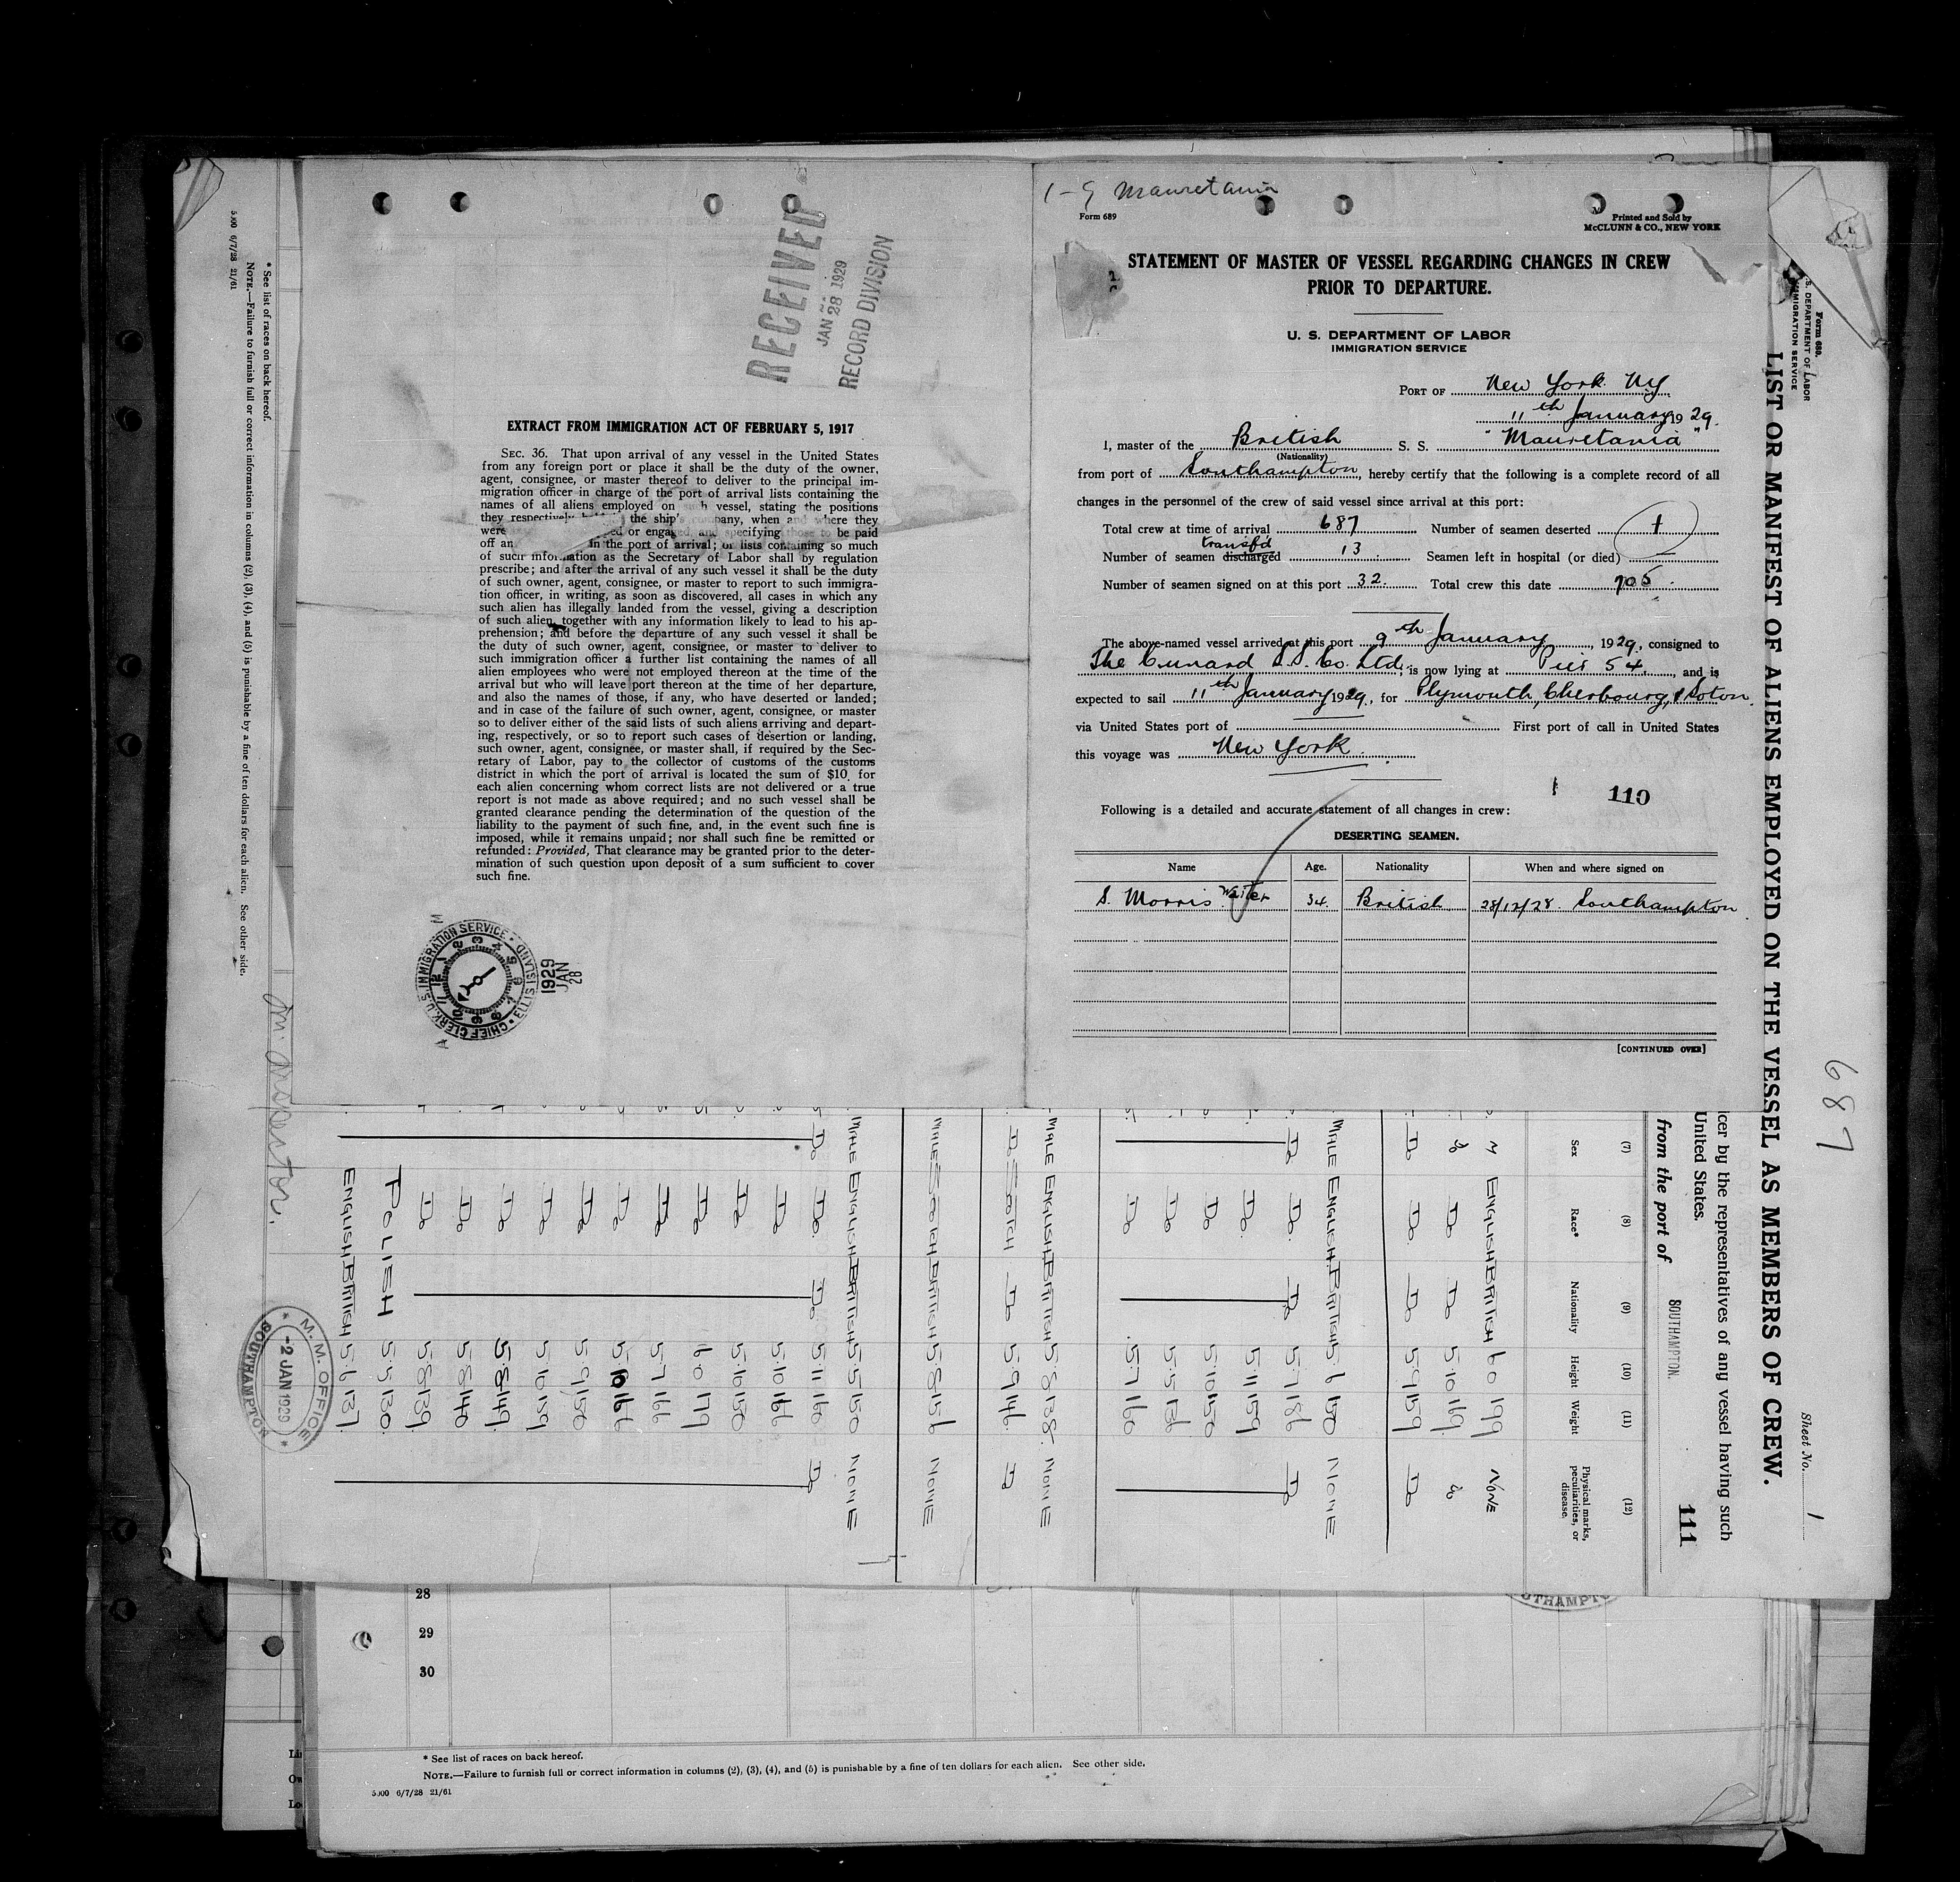 1-9 Mauretania
Form 689
Printed and Sold by
McCLUNN & CO., NEW YORK
STATEMENT OF MASTER OF VESSEL REGARDING CHANGES IN CREW
PRIOR TO DEPARTURE.
U. S. DEPARTMENT OF LABOR
IMMIGRATION SERVICE
PORT OF New York NY
11th January 1929.
I, master of the British S. S. "Mauretania"
(Nationality)
from port of Southampton, hereby certify that the following is a complete record of all
changes in the personnel of the crew of said vessel since arrival at this port:
Total crew at time of arrival 687 Number of seamen deserted 1
transfd
Number of seamen discharged 13 Seamen left in hospital (or died)
Number of seamen signed on at this port 32. Total crew this date 705.
The above-named vessel arrived at this port 9th January, 1929, consigned to
The Cunard S.S. Co. Ltd, is now lying at Pier 54, and is
expected to sail 11th January 1929, for Plymouth, Cherbourg, & Soton.
via United States port of First port of call in United States
this voyage was New York.
110
Following is a detailed and accurate statement of all changes in crew:
DESERTING SEAMEN.
Name Age. Nationality When and where signed on
S. Morris Waiter 34. British 28/12/28. Southampton
[CONTINUED OVER]
RECEIVED
JAN 28 1929
RECORD DIVISION
EXTRACT FROM IMMIGRATION ACT OF FEBRUARY 5, 1917
SEC. 36. That upon arrival of any vessel in the United States
from any foreign port or place it shall be the duty of the owner,
agent, consignee, or master thereof to deliver to the principal im-
migration officer in charge of the port of arrival lists containing the
names of all aliens employed on vessel, stating the positions
they respectively the ship's company, when and where they
were or engaged, and specifying those to be paid
off an In the port of arrival; or lists containing so much
of such information as the Secretary of Labor shall by regulation
prescribe; and after the arrival of any such vessel it shall be the duty
of such owner, agent, consignee, or master to report to such immigra-
tion officer, in writing, as soon as discovered, all cases in which any
such alien has illegally landed from the vessel, giving a description
of such alien, together with any information likely to lead to his ap-
prehension; and before the departure of any such vessel it shall be
the duty of such owner, agent, consignee, or master to deliver to
such immigration officer a further list containing the names of all
alien employees who were not employed thereon at the time of the
arrival but who will leave port thereon at the time of her departure,
and also the names of those, if any, who have deserted or landed;
and in case of the failure of such owner, agent, consignee, or master
so to deliver either of the said lists of such aliens arriving and depart-
ing, respectively, or so to report such cases of desertion or landing,
such owner, agent, consignee, or master shall, if required by the Sec-
retary of Labor, pay to the collector of customs of the customs
district in which the port of arrival is located the sum of $10 for
each alien concerning whom correct lists are not delivered or a true
report is not made as above required; and no such vessel shall be
granted clearance pending the determination of the question of the
liability to the payment of such fine, and, in the event such fine is
imposed, while it remains unpaid; nor shall such fine be remitted or
refunded: Provided, That clearance may be granted prior to the deter-
mination of such question upon deposit of a sum sufficient to cover
such fine.
CHIEF CLERK U.S. IMMIGRATION SERVICE ELLIS ISLAND
1929
JAN
28
Form 689.
S. DEPARTMENT OF LABOR
IMMIGRATION SERVICE
Sheet No. 1
687
LIST OR MANIFEST OF ALIENS EMPLOYED ON THE VESSEL AS MEMBERS OF CREW.
cer by the representatives of any vessel having such
United States.
111
from the port of SOUTHAMPTON.
(7) (8) (9) (10) (11) (12)
Sex Race* Nationality Height Weight Physical marks, peculiarities, or disease.
M ENGLISH BRITISH 6 0 199 NONE
do Do Do 5.10 169 do
Do Do Do 5 9 159 Do
MALE ENGLISH BRITISH 5 6 150 NONE
Do Do. Do 5 7 186 Do
Do 5 11 159
Do 5 10 150
Do 5 5 136
Do 5 7 160
MALE ENGLISH BRITISH 5 8 138. NONE
Do SCOTCH Do 5 9 146. Do
MALE SCOTCH BRITISH 5 8 156 NONE
MALE ENGLISH BRITISH 5 5 150 NONE
Do Do. Do. 5 11 160 Do
Do 5 10 166
Do 5 10 150
Do 6 0 179
Do 5 7 166
Do 5 10 166
Do 5 9 150
Do 5 10 159
Do 5 8 149.
Do 5 8 140
Do 5 8 139
POLISH 5 5 130.
ENGLISH BRITISH 5 6 137.
Inspector.
M. M. OFFICE
-2 JAN 1929
SOUTHAMPTON
* See list of races on back hereof.
NOTE.—Failure to furnish full or correct information in columns (2), (3), (4), and (5) is punishable by a fine of ten dollars for each alien. See other side.
5000 6/7/28 21/61
28
29
30
* See list of races on back hereof.
NOTE.—Failure to furnish full or correct information in columns (2), (3), (4), and (5) is punishable by a fine of ten dollars for each alien. See other side.
5000 6/7/28 21/61